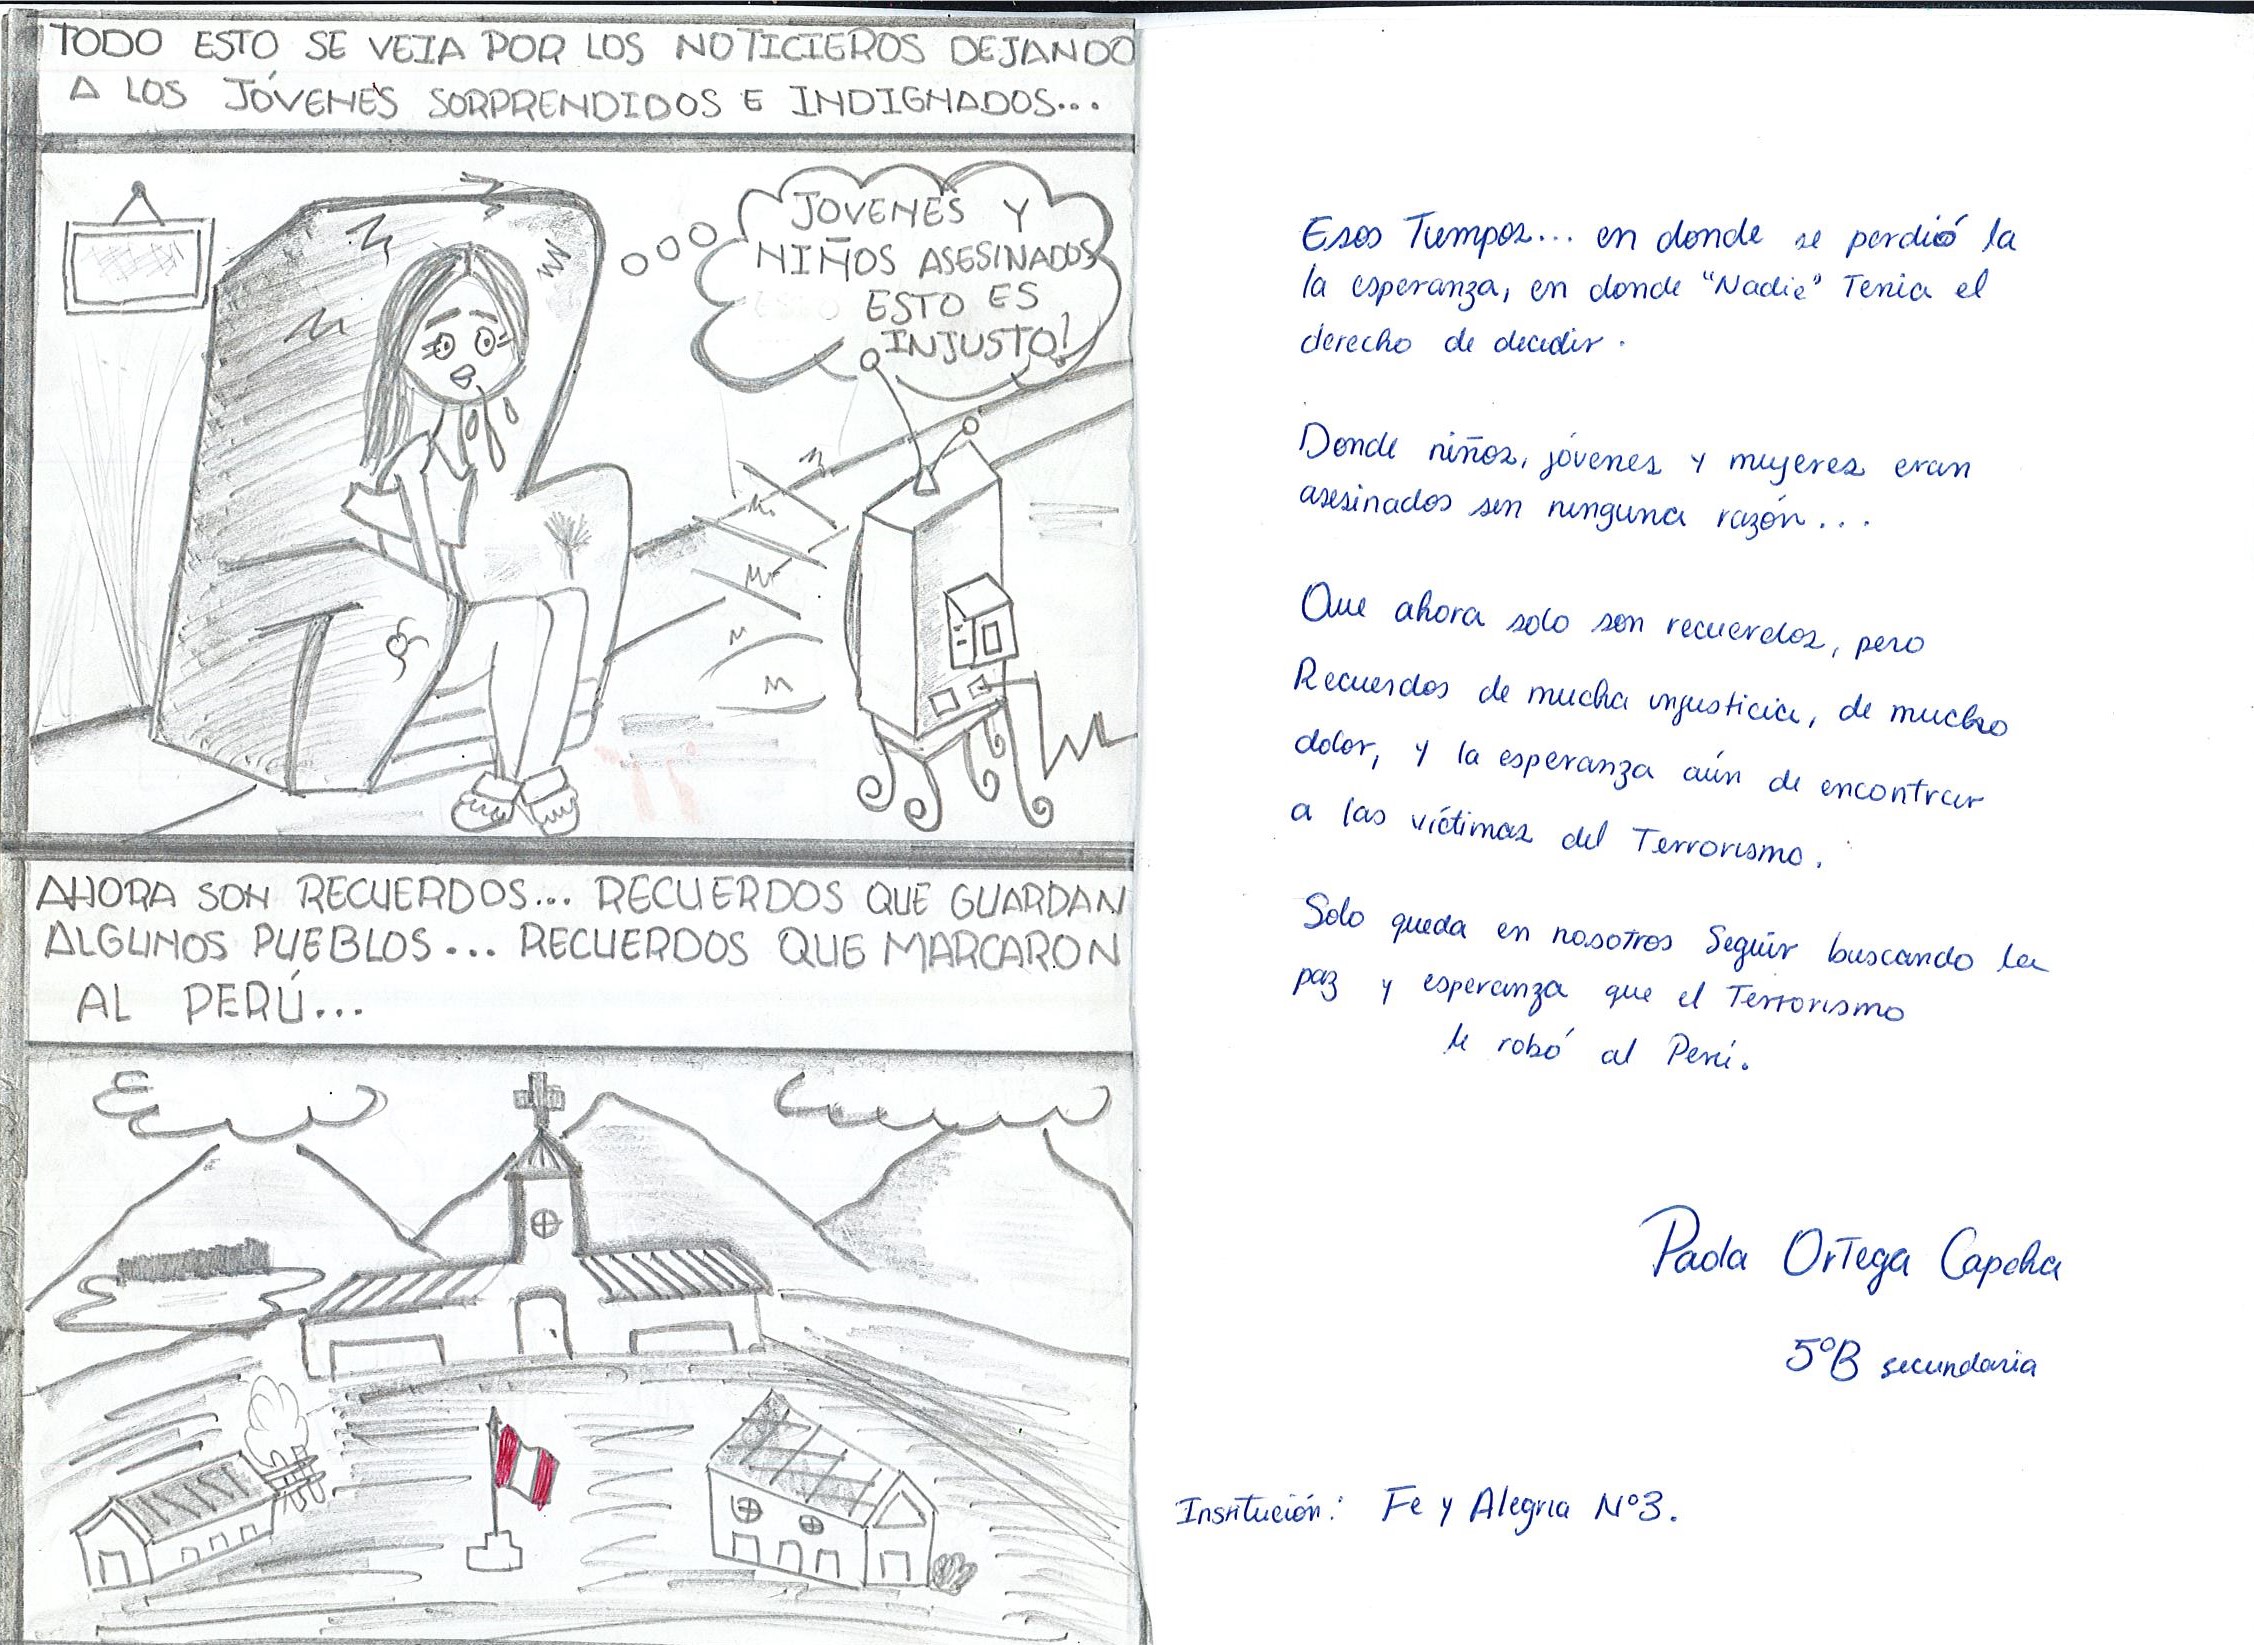 TODO ESTO SE VEIA POR LOS NOTICIEROS DEJANDO
A LOS JÓVENES SORPRENDIDOS E INDIGNADOS...
JOVENES Y
NIÑOS ASESINADOS
ESTO ES
INJUSTO!
AHORA SON RECUERDOS... RECUERDOS QUE GUARDAN
ALGUNOS PUEBLOS... RECUERDOS QUE MARCARON
AL PERÚ...
Esos Tiempos... en donde se perdió la
la esperanza, en donde "Nadie" Tenia el
derecho de decidir.
Donde niños, jóvenes y mujeres eran
asesinados sin ninguna razón...
Que ahora solo son recuerdos, pero
Recuerdos de mucha injusticia, de mucho
dolor, y la esperanza aún de encontrar
a las víctimas del Terrorismo.
Solo queda en nosotros Seguir buscando la
paz y esperanza que el Terrorismo
le robó al Perú.
Paola Ortega Capcha
5°B secundaria
Insntución: Fe y Alegria N°3.